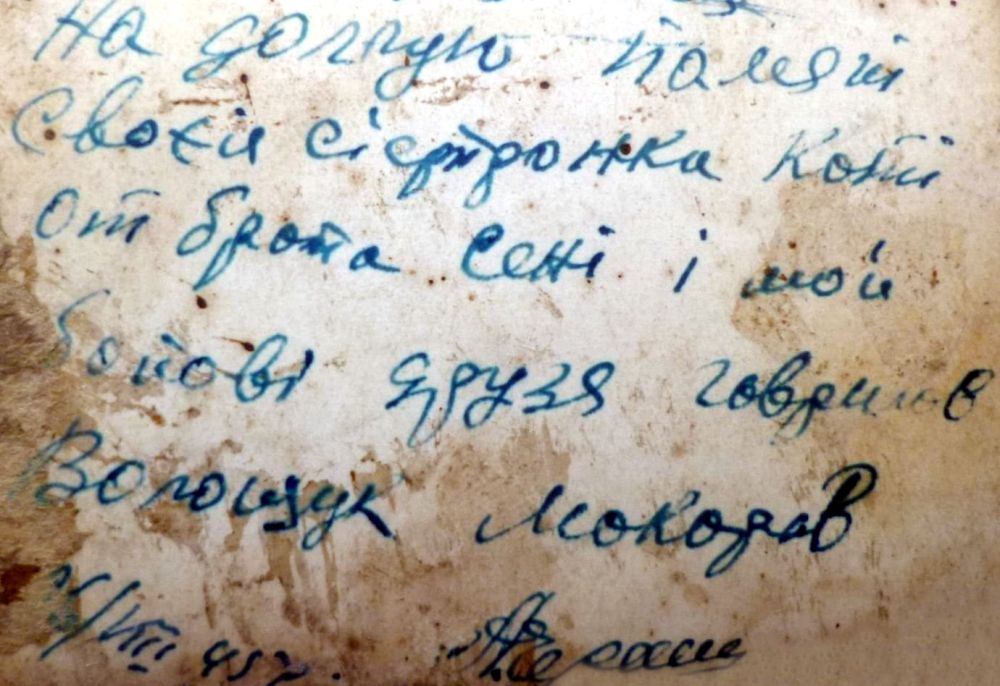 На долгую памят
Своей сієтронка Каті
от брата Сені і мой
бойові друзя говрилов
Волощук Мокаров
/VIII 45 г.